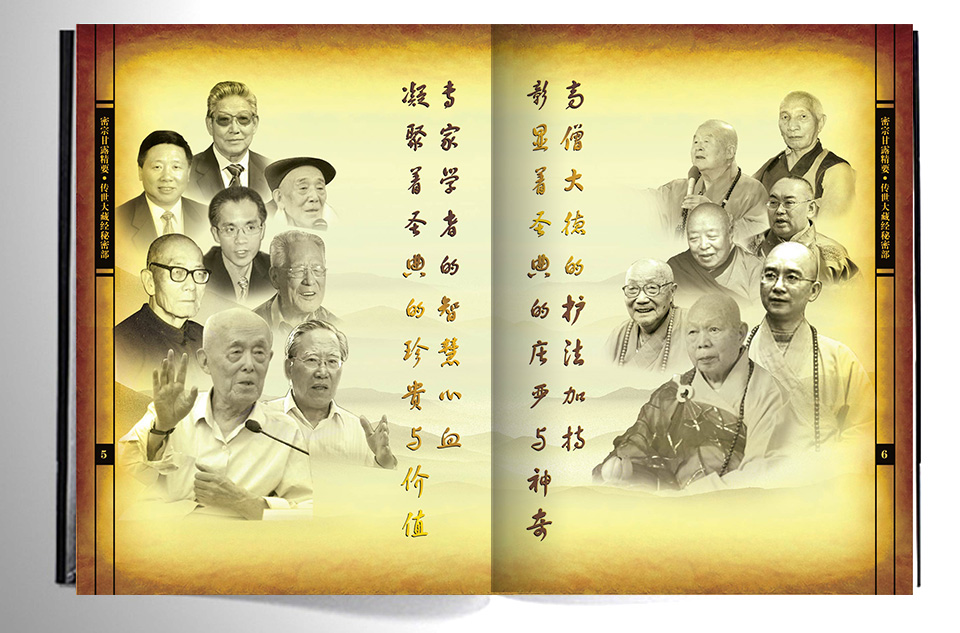 密宗甘露精要·传世大藏经秘密部
5
专家学者的智慧心血
凝聚着圣典的珍贵与价值
高僧大德的护法加持
彰显着圣典的庄严与神奇
密宗甘露精要·传世大藏经秘密部
6